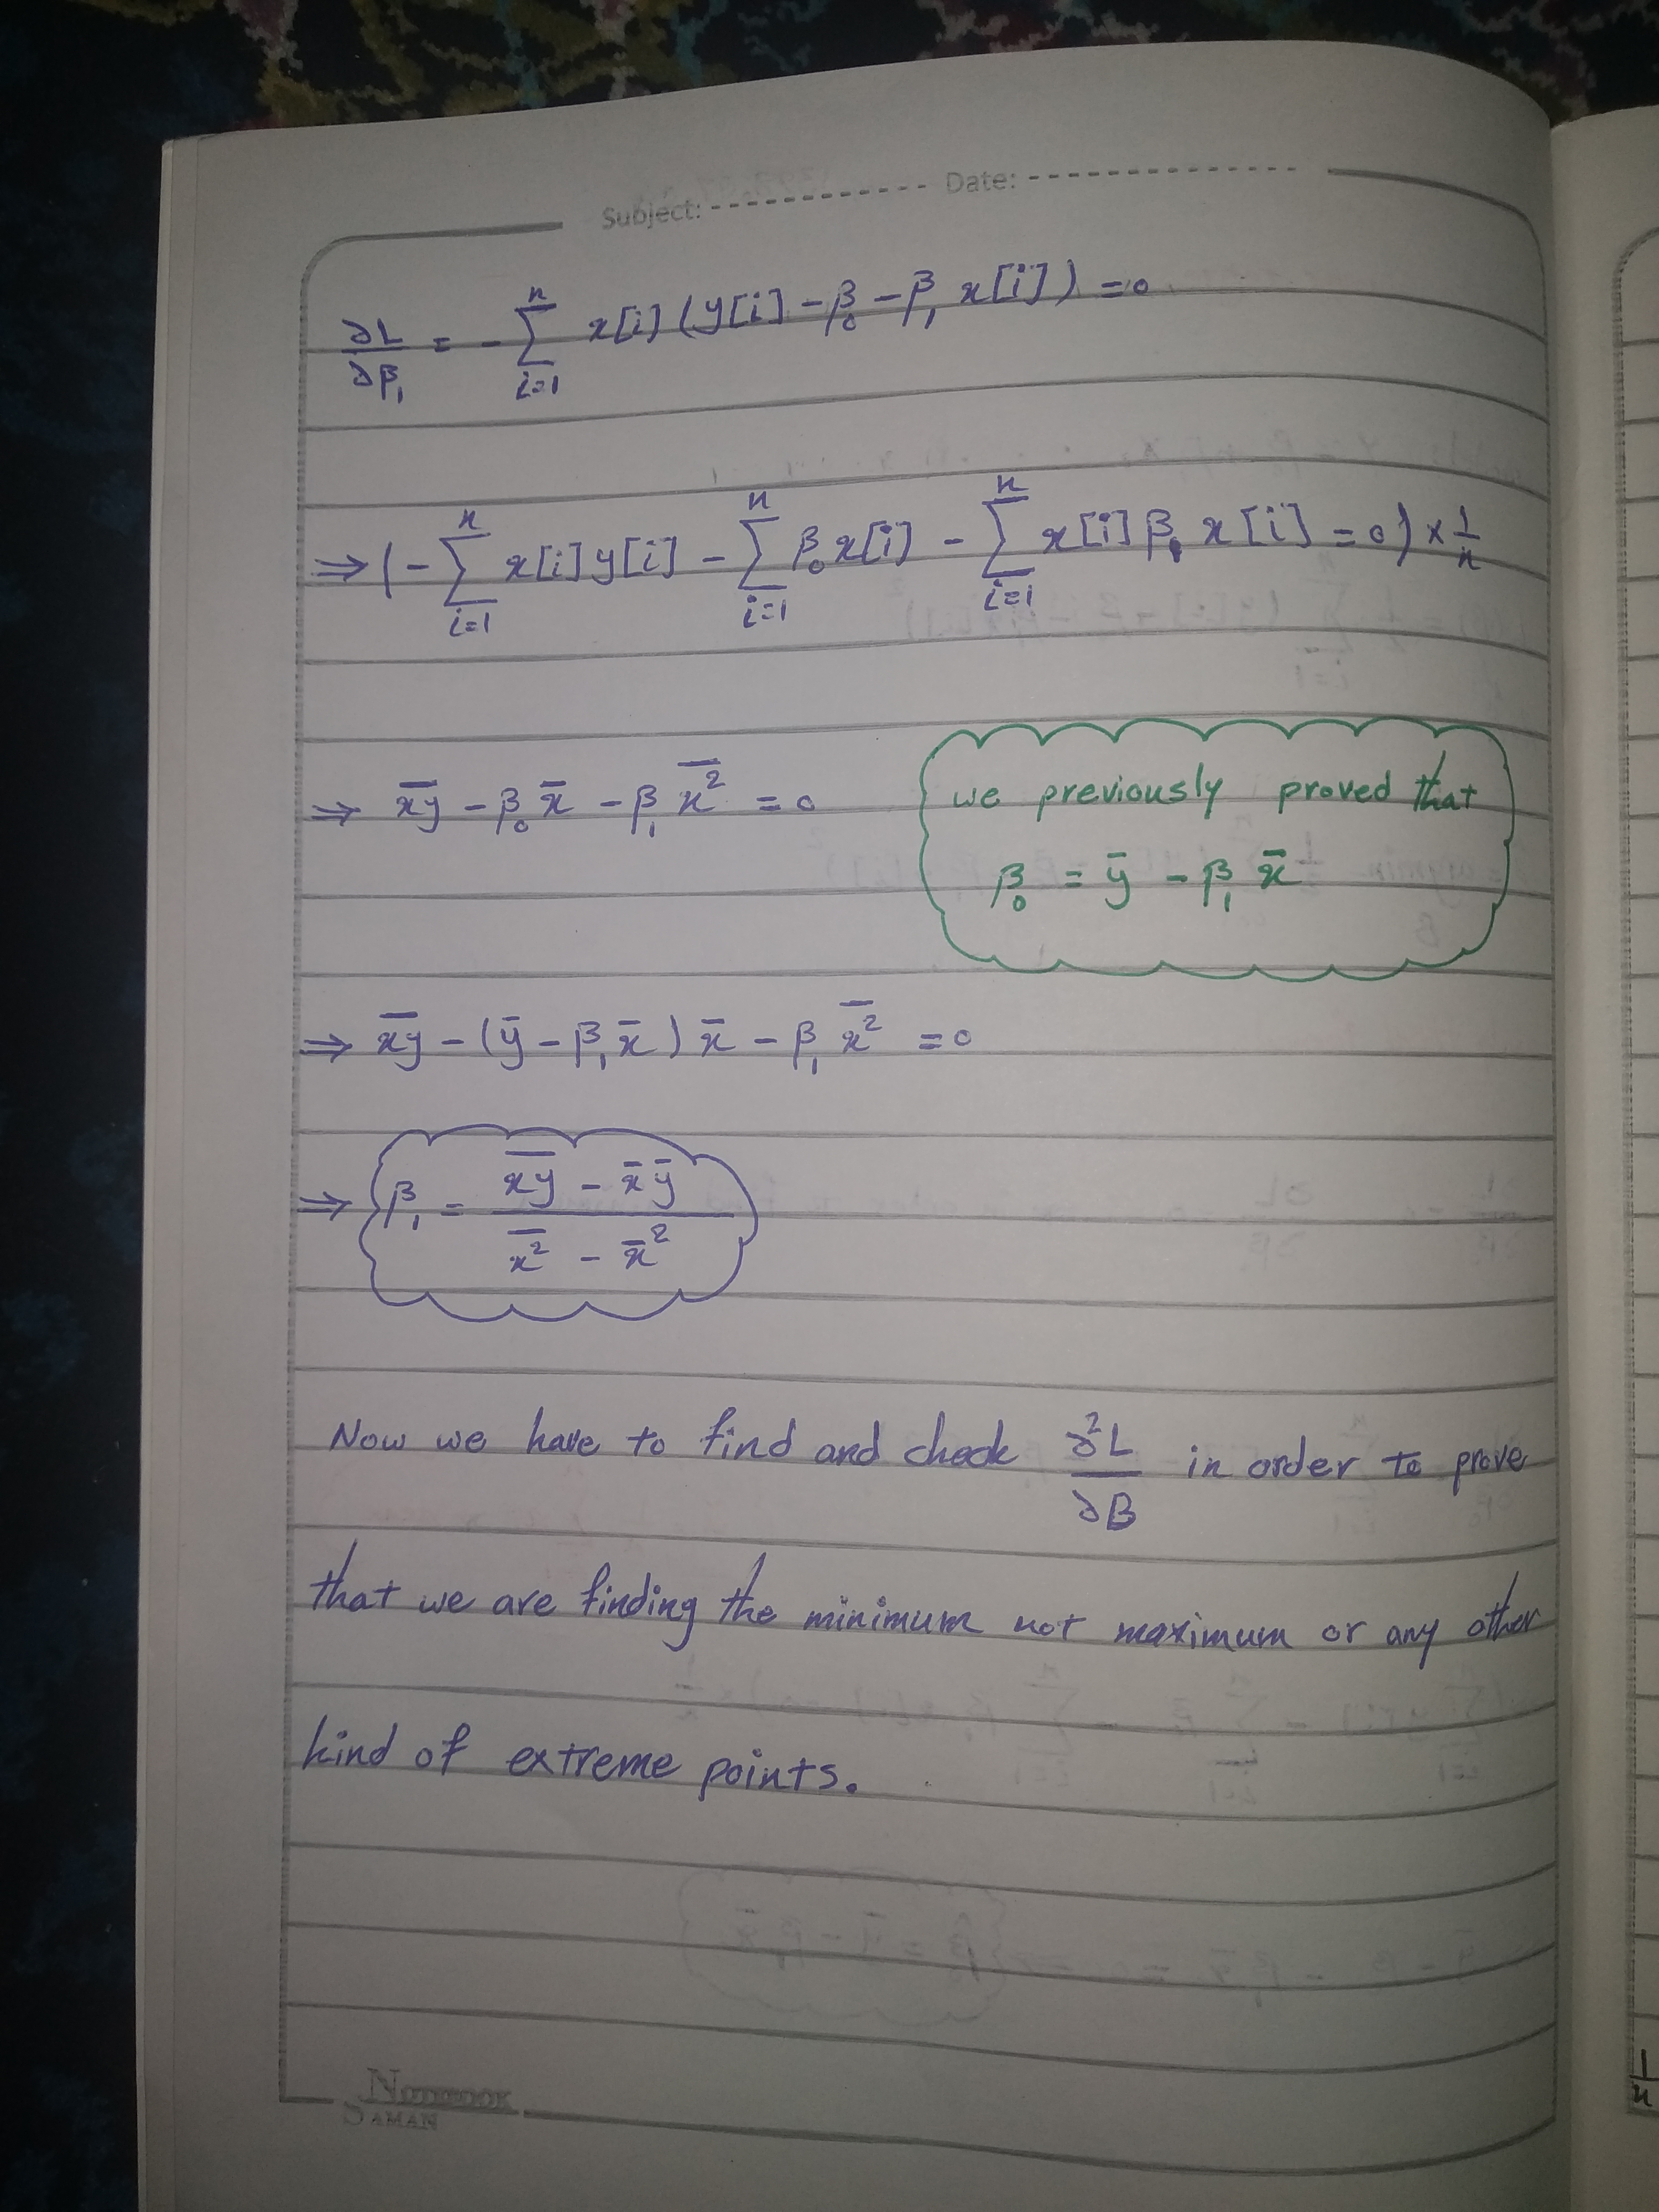 Subject: Date:
∂L/∂β₁ = - ∑_{i=1}^{n} x[i] (y[i] - β₀ - β₁ x[i]) = 0
⇒ (- ∑_{i=1}^{n} x[i] y[i] - ∑_{i=1}^{n} β₀ x[i] - ∑_{i=1}^{n} x[i] β₁ x[i] = 0) × 1/n
⇒ x̅y̅ - β₀ x̄ - β₁ x̅²̅ = 0
we previously proved that
β₀ = ȳ - β₁ x̄
⇒ x̅y̅ - (ȳ - β₁ x̄) x̄ - β₁ x̅²̅ = 0
⇒ β₁ = (x̅y̅ - x̄ ȳ) / (x̅²̅ - x̄²)
Now we have to find and check ∂²L/∂B in order to prove
that we are finding the minimum not maximum or any other
kind of extreme points.
NOTEBOOK
SAMAN
1/n